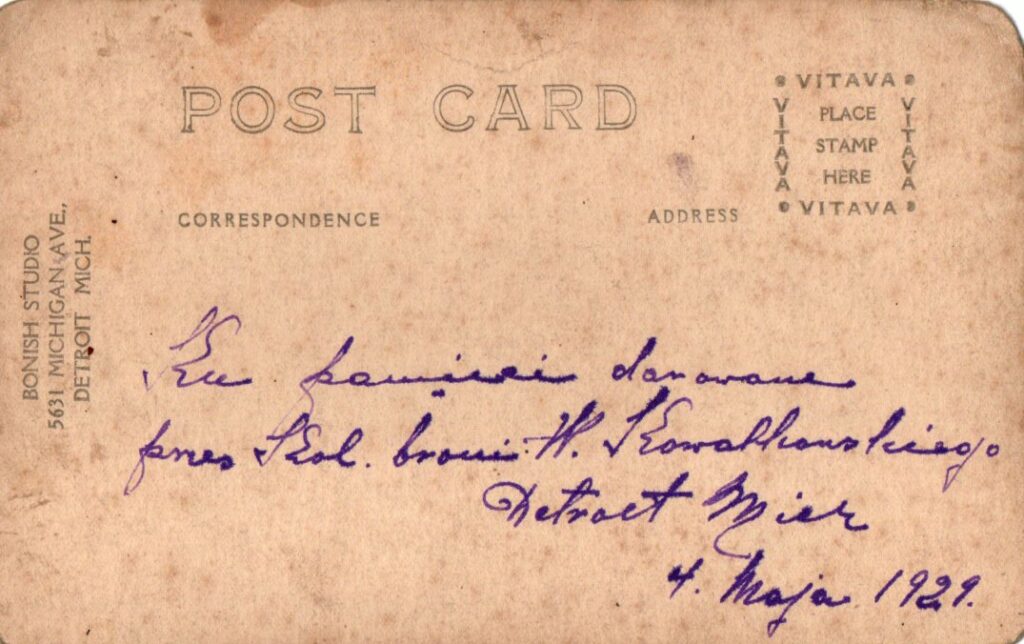 POST CARD
VITAVA
VITAVA
PLACE
STAMP
HERE
VITAVA
VITAVA
CORRESPONDENCE
ADDRESS
BONISH STUDIO
5631 MICHIGAN AVE.,
DETROIT MICH.
Ku pamięci darowane
przez Kol. broni. W. Kowalkowskiego
Detroit Mich
4. Maja 1929.